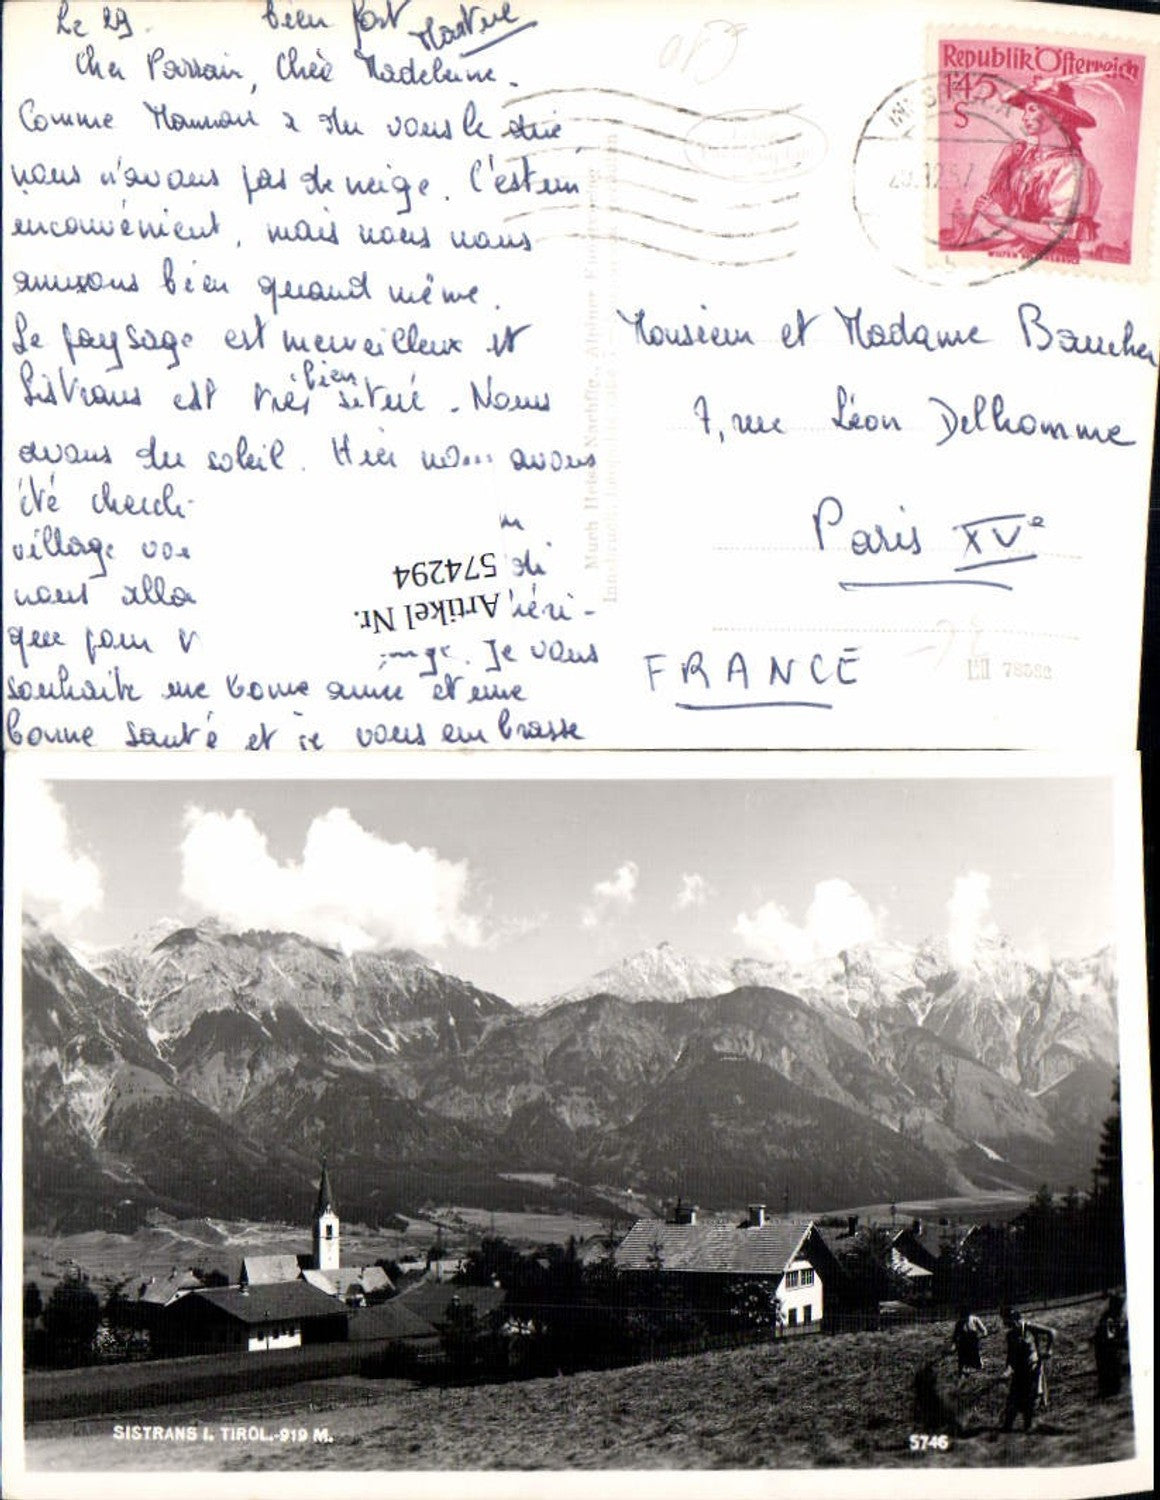 Le 29. bien fort
Martine
Cher Parrain, Chère Madeleine.
Comme Maman a dû vous le dire,
nous n'avons pas de neige. C'est un
inconvénient, mais nous nous
amusons bien quand même.
Le paysage est merveilleux et
Sistrans est très bien situé. Nous
avons du soleil. Hier nous avons
été cherch
village
nous allo
que pour
Je vous
souhaite une bonne année et une
bonne santé et je vous embrasse
Artikel Nr.
574294
Republik Österreich
1'45
S
Monsieur et Madame Baucher
7, rue Léon Delhomme
Paris XVe
FRANCE
LII 78532
SISTRANS I. TIROL.-919 M.
5746